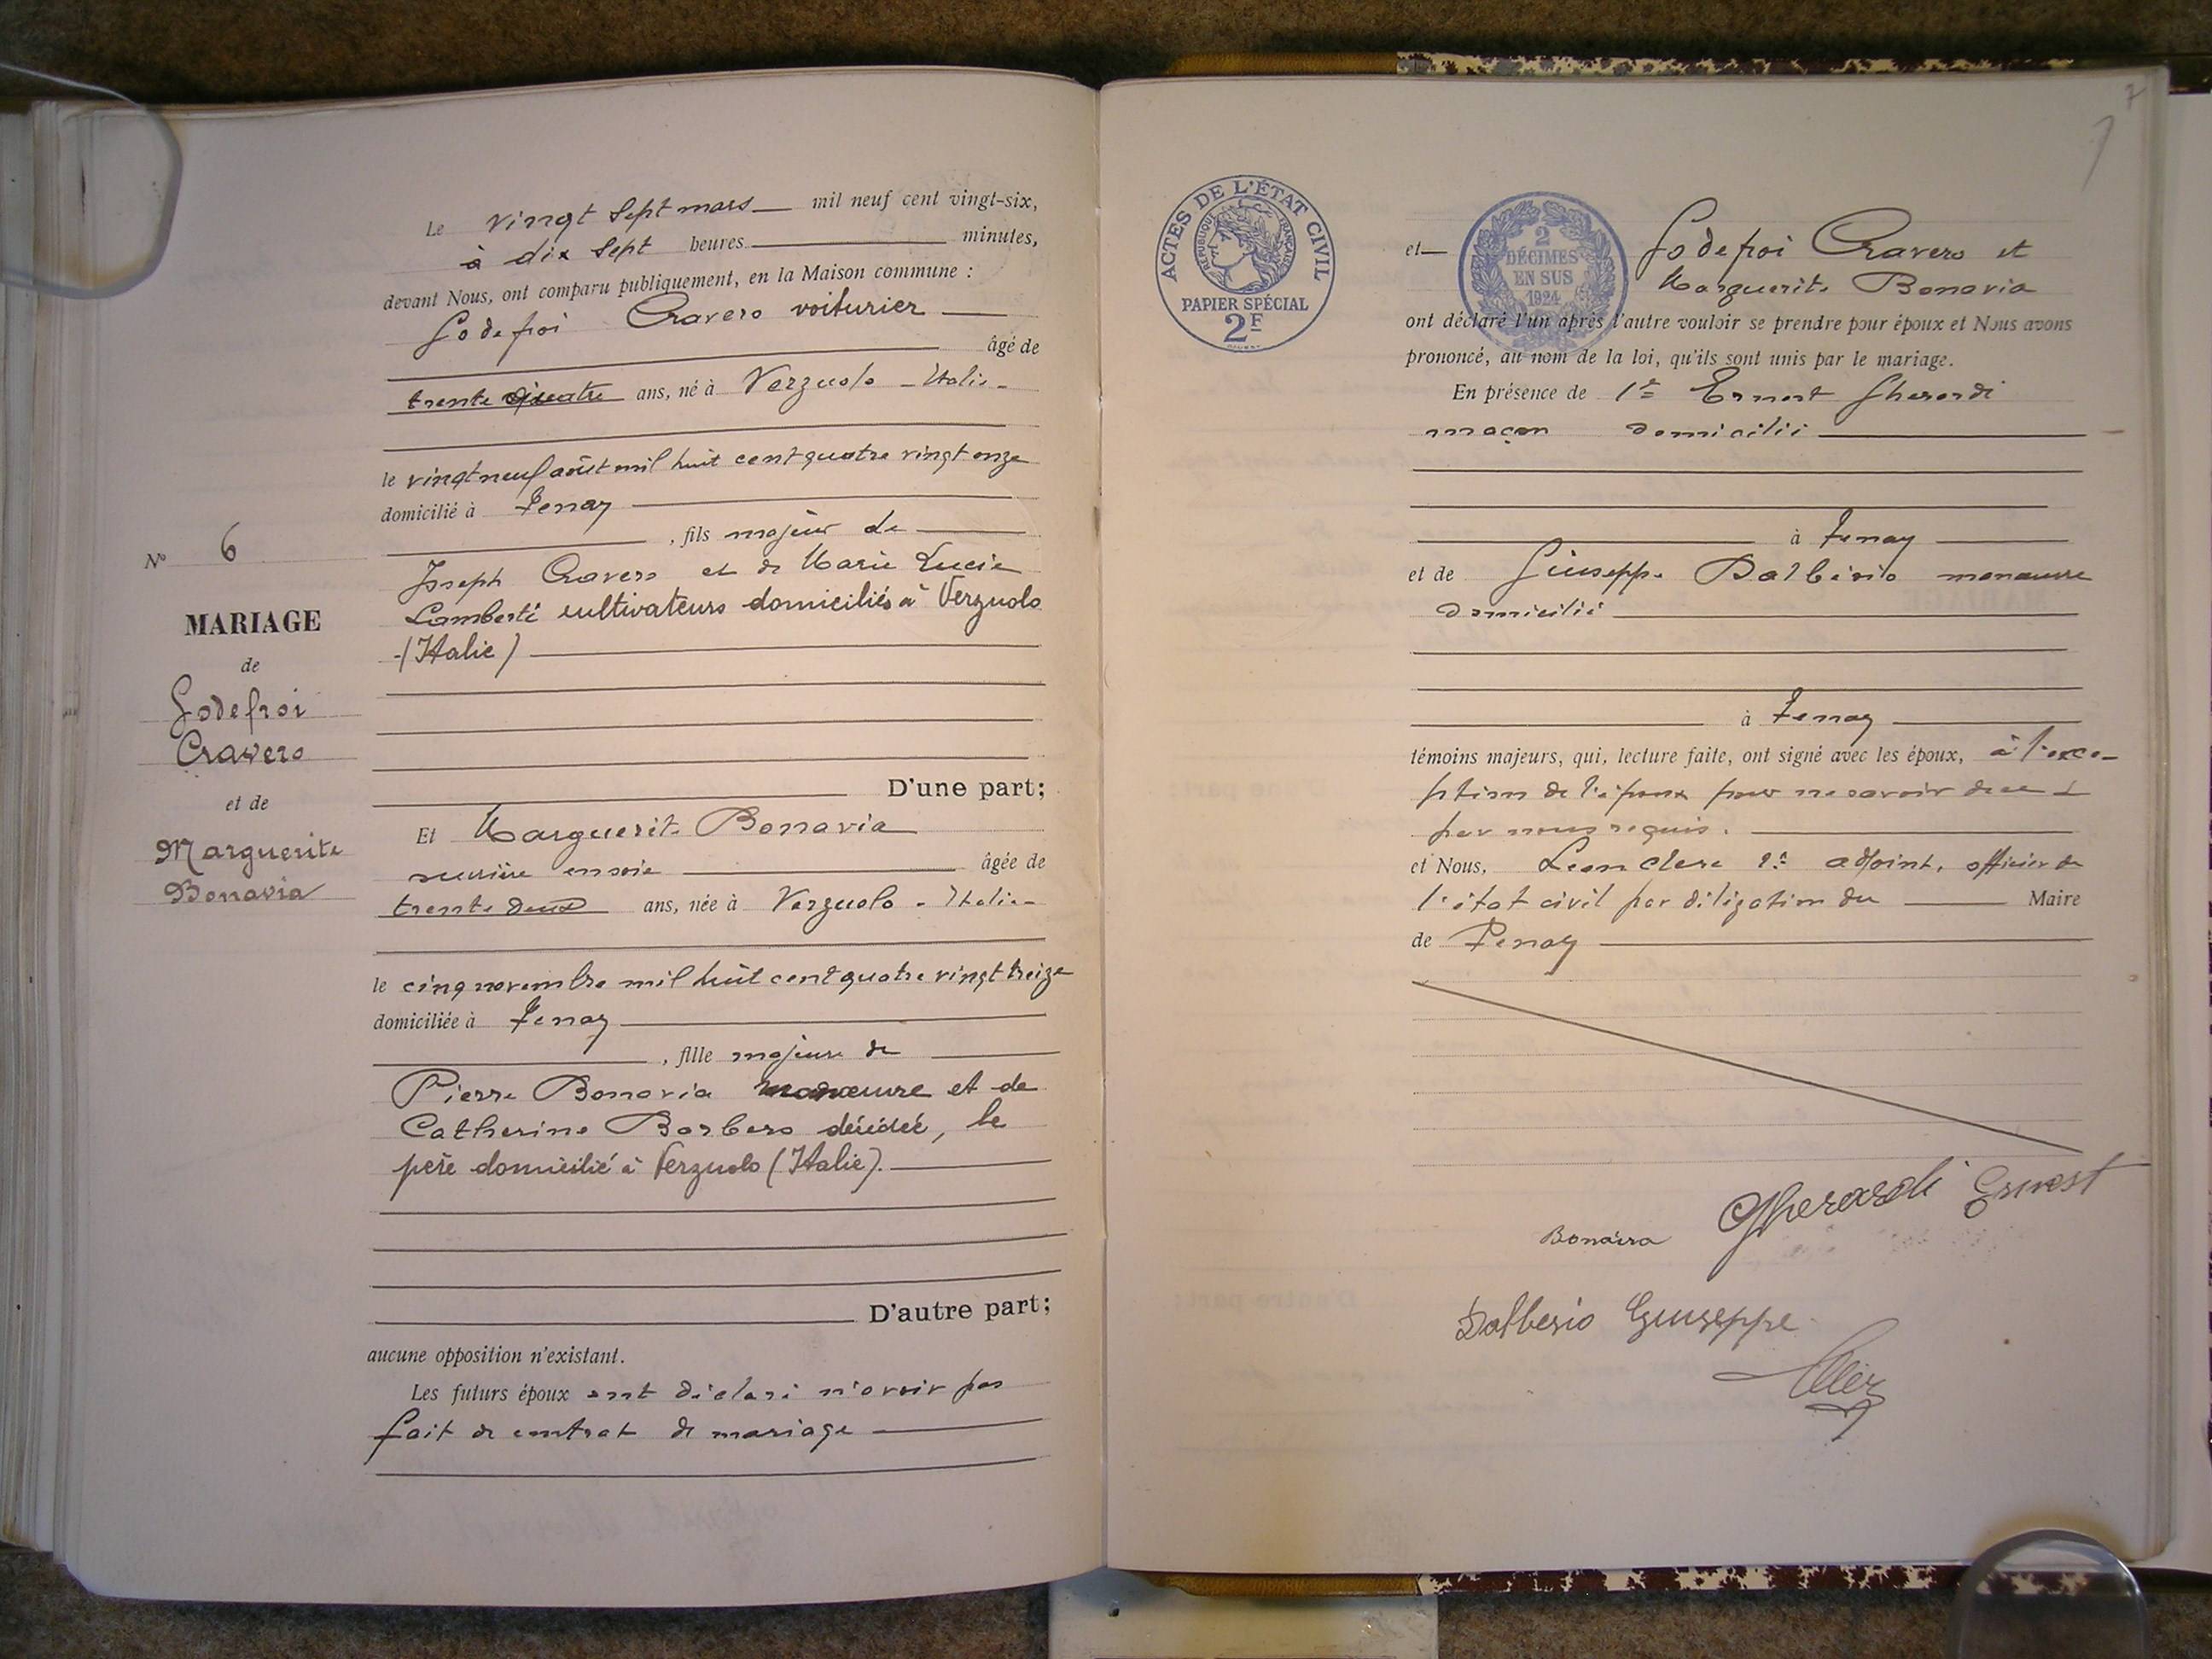 N° 6
MARIAGE
de
Godefroi
Cravero
et de
Marguerite
Bonavia
Le vingt sept mars mil neuf cent vingt-six,
à dix sept heures minutes,
devant Nous, ont comparu publiquement, en la Maison commune :
Godefroi Cravero voiturier
âgé de
trente quatre ans, né à Verzuolo - Italie -
le vingt neuf août mil huit cent quatre vingt onze
domicilié à Tenay
, fils majeur de
Joseph Cravero et de Marie Lucie
Lamberti cultivateurs domiciliés à Verzuolo
(Italie)
D'une part;
Et Marguerite Bonavia
ouvrière en soie âgée de
trente deux ans, née à Verzuolo - Italie -
le cinq novembre mil huit cent quatre vingt treize
domiciliée à Tenay
, fille majeure de
Pierre Bonavia manœuvre et de
Catherine Barbero décédée, le
père domicilié à Verzuolo (Italie).
D'autre part;
aucune opposition n'existant.
Les futurs époux ont déclaré n'avoir pas
fait de contrat de mariage
7
ACTES DE L'ÉTAT CIVIL
RÉPUBLIQUE FRANÇAISE
PAPIER SPÉCIAL
2F
2
DÉCIMES
EN SUS
1924
et Godefroi Cravero et
Marguerite Bonavia
ont déclaré l'un après l'autre vouloir se prendre pour époux et Nous avons
prononcé, au nom de la loi, qu'ils sont unis par le mariage.
En présence de 1° Ernest Gherardi
maçon domicilié
à Tenay
et de Giuseppe Dalbesio manœuvre
domicilié
à Tenay
témoins majeurs, qui, lecture faite, ont signé avec les époux, à l'exce-
ption de l'époux pour ne savoir de ce
par nous requis.
et Nous, Léon Clerc 1er adjoint, officier de
l'état civil par délégation du Maire
de Tenay
Bonavia Gherardi Ernest
Dalbesio Giuseppe